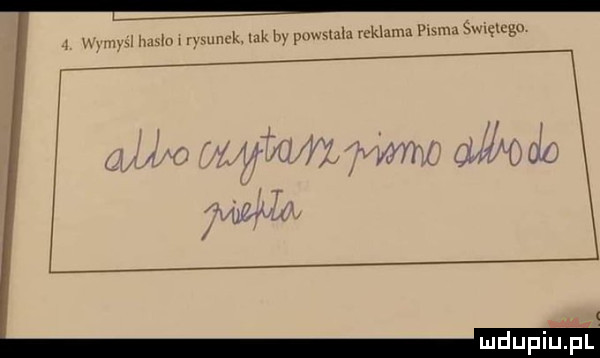 4. Wymyśl hasło i rysunek, tak by powstała reklama Pisma Świętego.
albo czytasz pismo albo do
piekła
mdupiu.pl